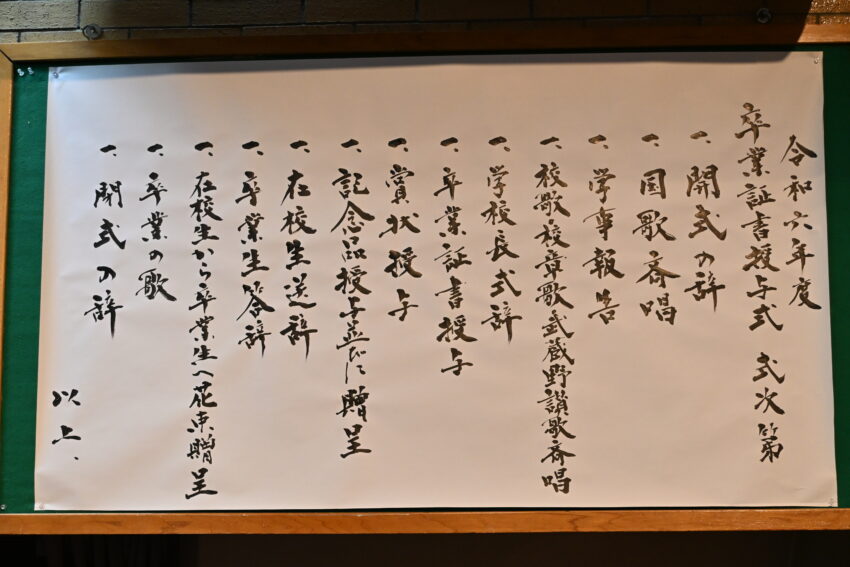 令和六年度
卒業証書授与式 式次第
一、開式の辞
一、国歌斉唱
一、学事報告
一、校歌校章歌武蔵野讃歌斉唱
一、学校長式辞
一、卒業証書授与
一、賞状授与
一、記念品授与並びに贈呈
一、在校生送辞
一、卒業生答辞
一、在校生から卒業生へ花束贈呈
一、卒業の歌
一、閉式の辞
以上、